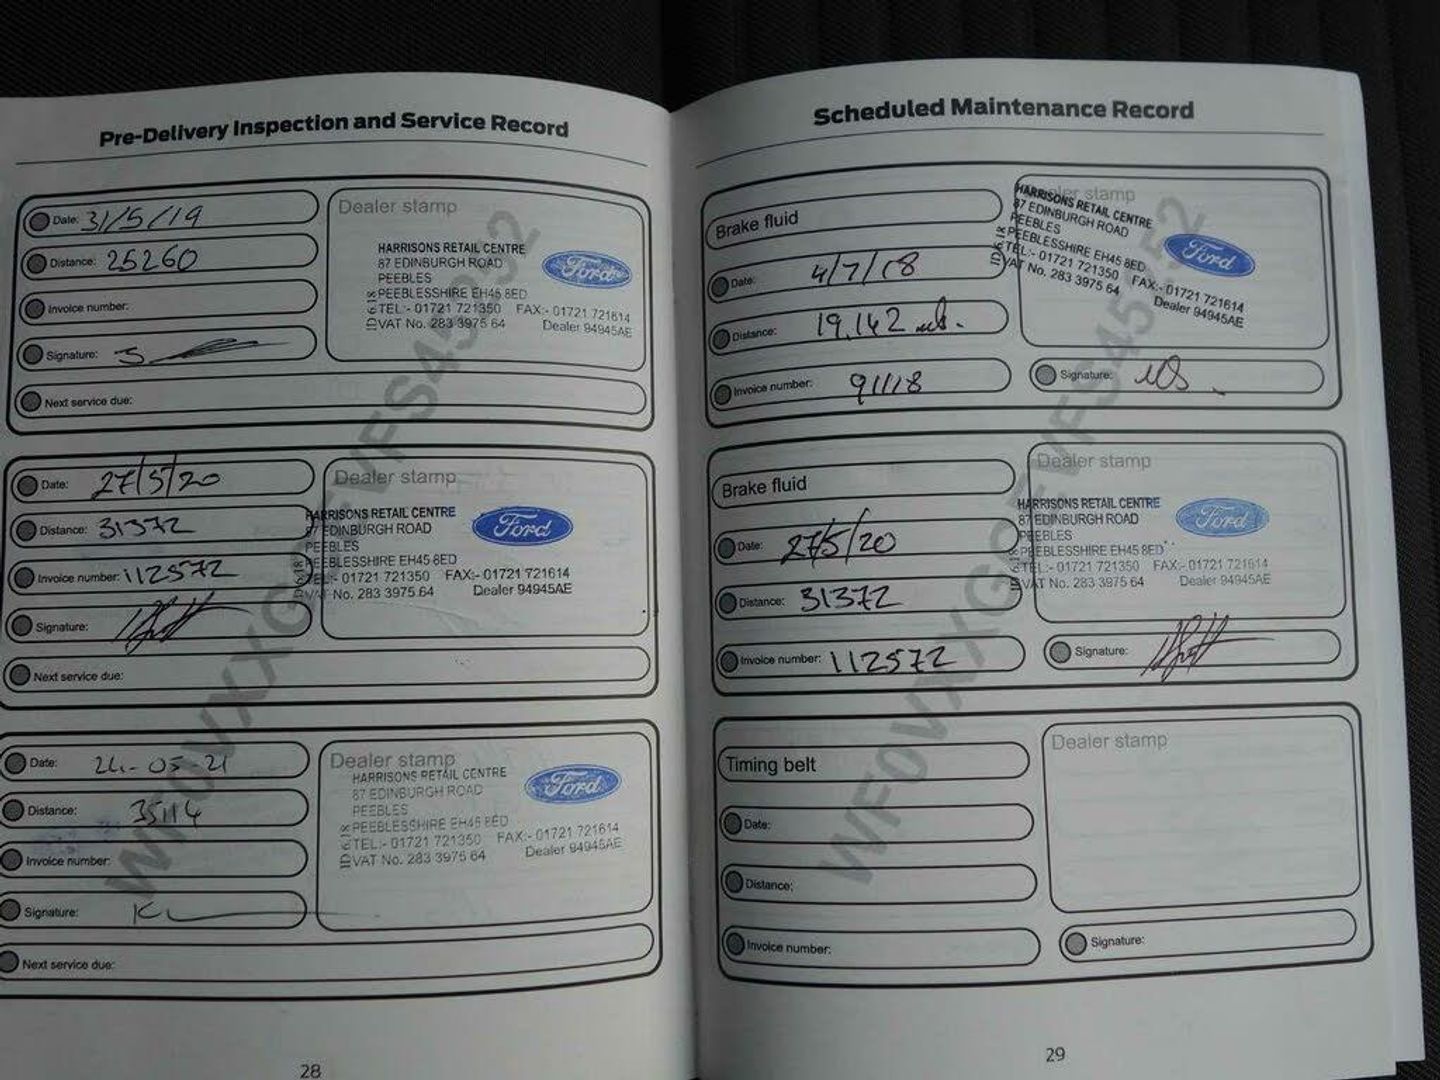 Pre-Delivery Inspection and Service Record
Date: 31/5/19
Distance: 25260
Invoice number:
Signature:
Next service due:
Dealer stamp
HARRISONS RETAIL CENTRE
87 EDINBURGH ROAD
PEEBLES
PEEBLESSHIRE EH45 8ED
TEL:- 01721 721350 FAX:- 01721 721614
VAT No. 283 3975 64 Dealer 94945AE
Ford
Date: 27/5/20
Distance: 31372
Invoice number: 112572
Signature:
Next service due:
Dealer stamp
HARRISONS RETAIL CENTRE
87 EDINBURGH ROAD
PEEBLES
PEEBLESSHIRE EH45 8ED
TEL:- 01721 721350 FAX:- 01721 721614
VAT No. 283 3975 64 Dealer 94945AE
Ford
Date: 24-05-21
Distance: 35114
Invoice number:
Signature:
Next service due:
Dealer stamp
HARRISONS RETAIL CENTRE
87 EDINBURGH ROAD
PEEBLES
PEEBLESSHIRE EH45 8ED
TEL:- 01721 721350 FAX:- 01721 721614
VAT No. 283 3975 64 Dealer 94945AE
Ford
28
Scheduled Maintenance Record
Brake fluid
Date: 4/7/18
Distance: 19,142 mls.
Invoice number: 91118
Dealer stamp
HARRISONS RETAIL CENTRE
87 EDINBURGH ROAD
PEEBLES
PEEBLESSHIRE EH45 8ED
TEL:- 01721 721350 FAX:- 01721 721614
VAT No. 283 3975 64 Dealer 94945AE
Ford
Signature:
Brake fluid
Date: 27/5/20
Distance: 31372
Invoice number: 112572
Dealer stamp
HARRISONS RETAIL CENTRE
87 EDINBURGH ROAD
PEEBLES
PEEBLESSHIRE EH45 8ED
TEL:- 01721 721350 FAX:- 01721 721614
VAT No. 283 3975 64 Dealer 94945AE
Ford
Signature:
Timing belt
Date:
Distance:
Invoice number:
Dealer stamp
Signature:
29